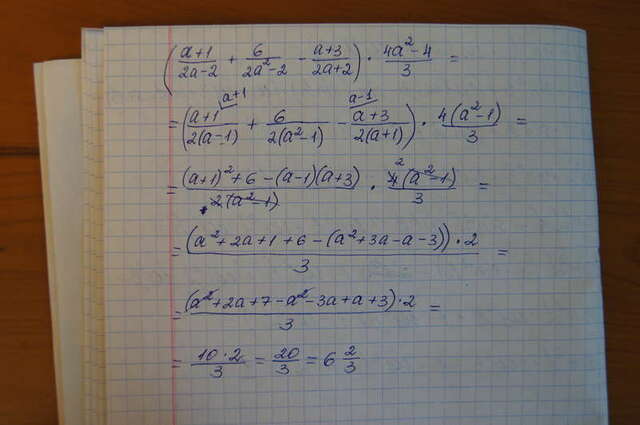 ( (a+1)/(2a-2) + 6/(2a²-2) - (a+3)/(2a+2) ) · (4a²-4)/3 =
a+1 a-1
= ( (a+1)/(2(a-1)) + 6/(2(a²-1)) - (a+3)/(2(a+1)) ) · (4(a²-1))/3 =
= ((a+1)²+6-(a-1)(a+3))/(2(a²-1)) · 2 (4(a²-1))/3 =
= ((a²+2a+1+6-(a²+3a-a-3))·2)/3 =
= ((a²+2a+7-a²-3a+a+3)·2)/3 =
= (10·2)/3 = 20/3 = 6 2/3